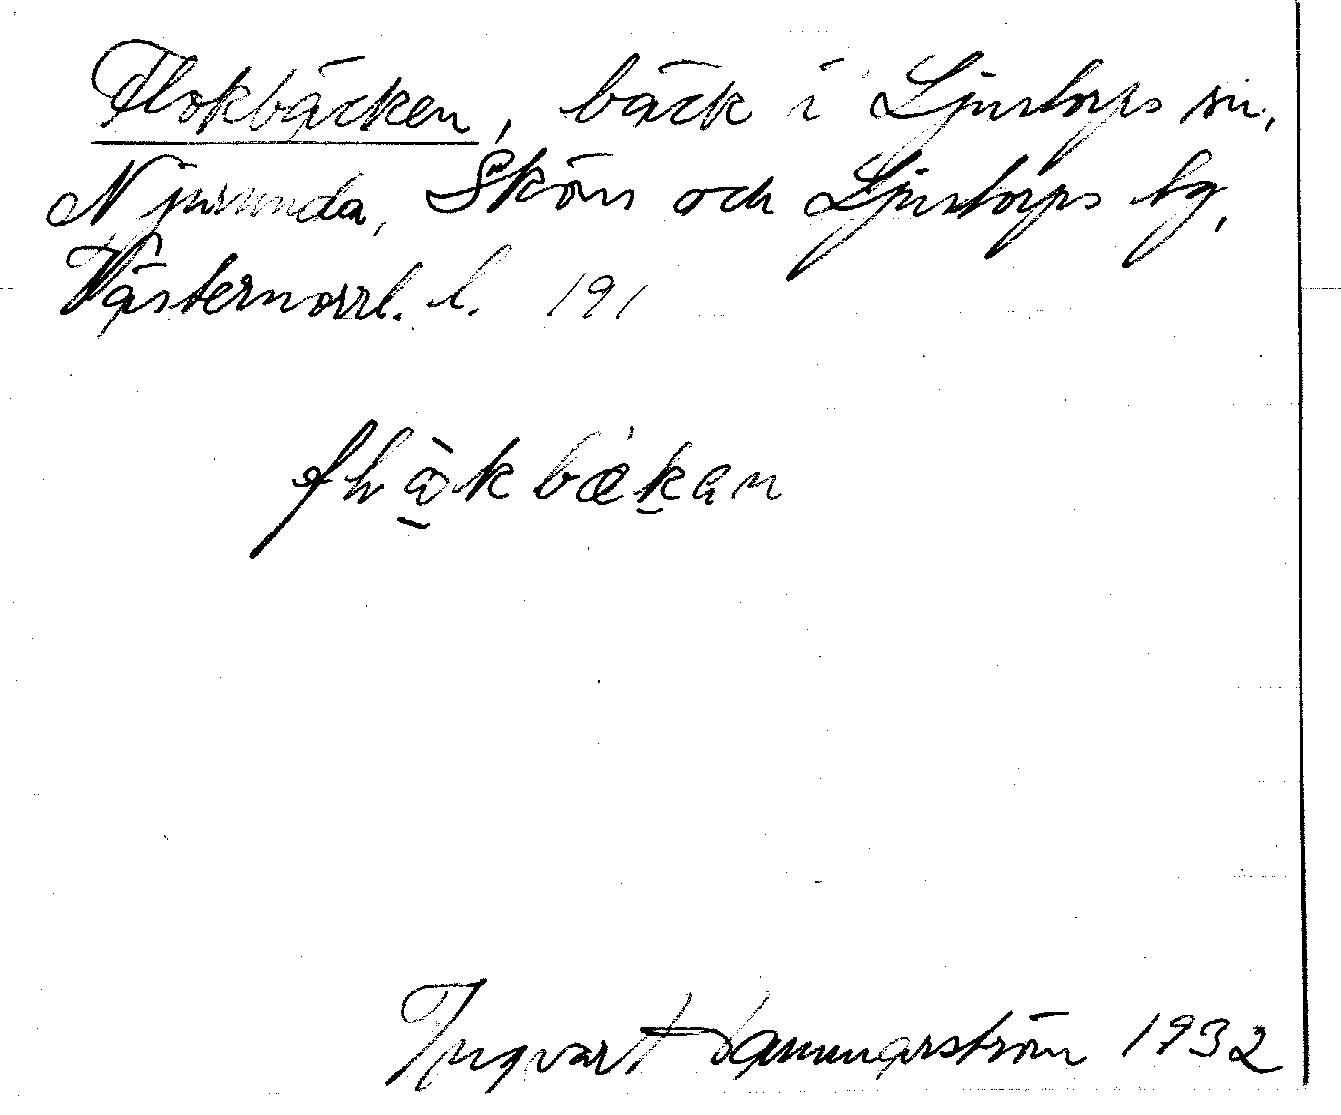 Flokbäcken, bäck i Ljustorps sn,
Njurunda, Sköns och Ljustorps tg,
Västernorrl. l. 191
Ingvart 1932